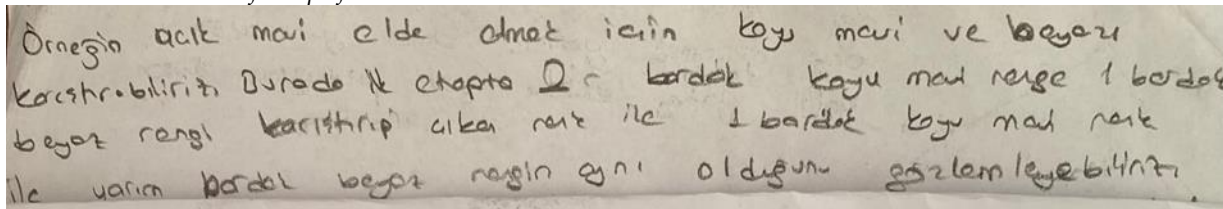 Örneğin açık mavi elde etmek için koyu mavi ve beyazı
karıştırabiliriz. Burada ilk etapta 2 bardak koyu mavi renge 1 bardak
beyaz rengi karıştırıp çıkan renk ile 1 bardak koyu mavi renk
ile yarım bardak beyaz rengin aynı olduğunu gözlemleyebiliriz.